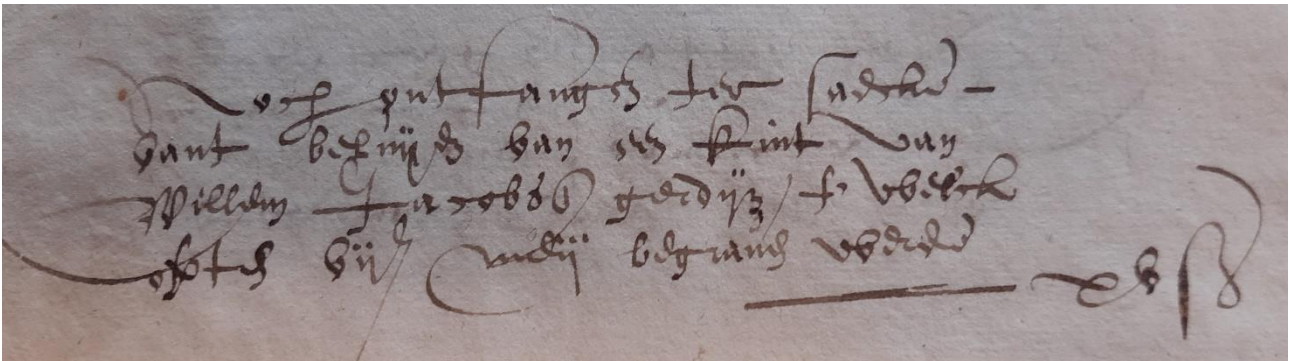 Noch ontfangen ter saecke
vant beluijden van een kint van
Willem Jacobss gerdijn / t welck
opten viij meij begraven werde
xv ß